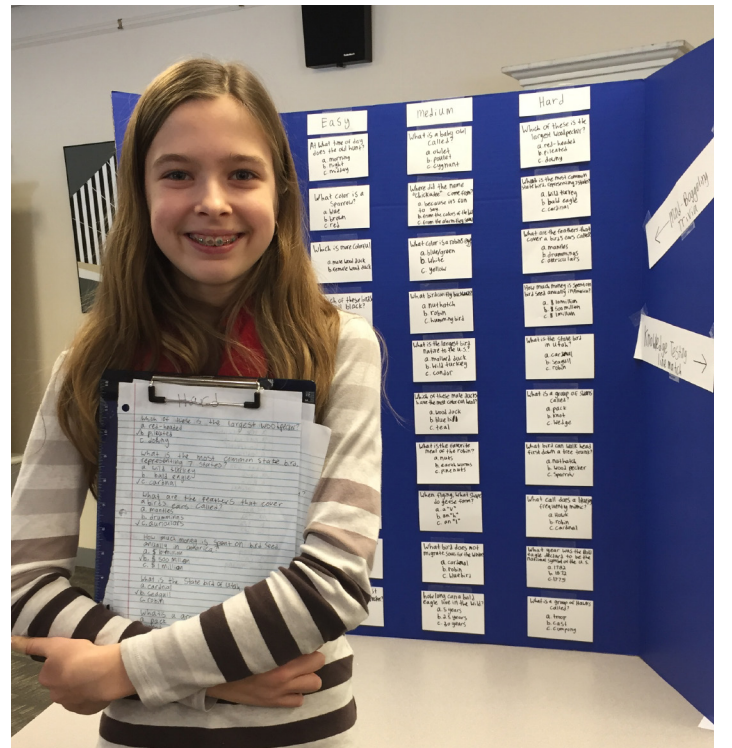 Easy
At what time of day
does the owl hunt?
a. morning
b. night
c. midday
What color is a
sparrow?
a. blue
b. brown
c. red
Which is more colorful
a. male wood duck
b. female wood duck
of these birds
black?
Medium
What is a baby owl
called?
a. owlet
b. pullet
c. cygnant
Where did the name
"chickadee" come from?
a. because it's fun
to say
b. from the colors of the
c. from the alarm they
What color is a robin's egg?
a. blue/green
b. white
c. yellow
What bird can fly backwards?
a. nuthatch
b. robin
c. hummingbird
What is the largest bird
native to the U.S.?
a. mallard duck
b. wild turkey
c. condor
Which of these male ducks
have the most color on head?
a. wood duck
b. blue
c. teal
What is the favorite
meal of the robin?
a. nuts
b. earthworms
c. pine nuts
When flying, what shape
do geese form?
a. a "V"
c. an "I"
What bird does not
migrate south in the winter?
a. cardinal
b. robin
c. bluebird
how long can a bald
eagle live in the wild?
a. 5 years
b. 25 years
Hard
Which of these is the
largest woodpecker?
a. red-headed
b. pileated
c. downy
What is the most common
state bird representing 7 states?
a. wild turkey
b. bald eagle
c. cardinal
What are the feathers that
cover a bird's ears called?
a. mantles
b. drummings
c. auriculars
How much money is spent on
bird seed annually in America?
b. $ 500 million
c. $ 1 million
What is the state bird
in Utah?
a. cardinal
b. seagull
c. robin
What is a group of
called?
a. pack
b. knot
c. wedge
What bird can walk head
first down a tree trunk?
a. nuthatch
b. wood pecker
c. sparrow
What call does a
frequently mimic?
a. hawk
b. robin
c. cardinal
What year was the bald
eagle declared to be the
national symbol of the U.S.
a. 1782
b. 1872
What is a group of hawks
called?
a. troop
b. cast
← Mind Boggling
Trivia
Knowledge Testing
→
Hard
Which of these is the largest woodpecker?
a. red-headed
b. pileated
c. downy
What is the most common state bird
representing 7 states?
a. wild turkey
b. bald eagle
c. cardinal
What are the feathers that cover
a bird's ears called?
a. mantles
b. drummings
c. auriculars
How much money is spent on bird seed
in America?
b. $ 500 million
c. $ 1 million
What is the state bird of Utah
a. cardinal
b. seagull
c. robin
What is a
a. pack